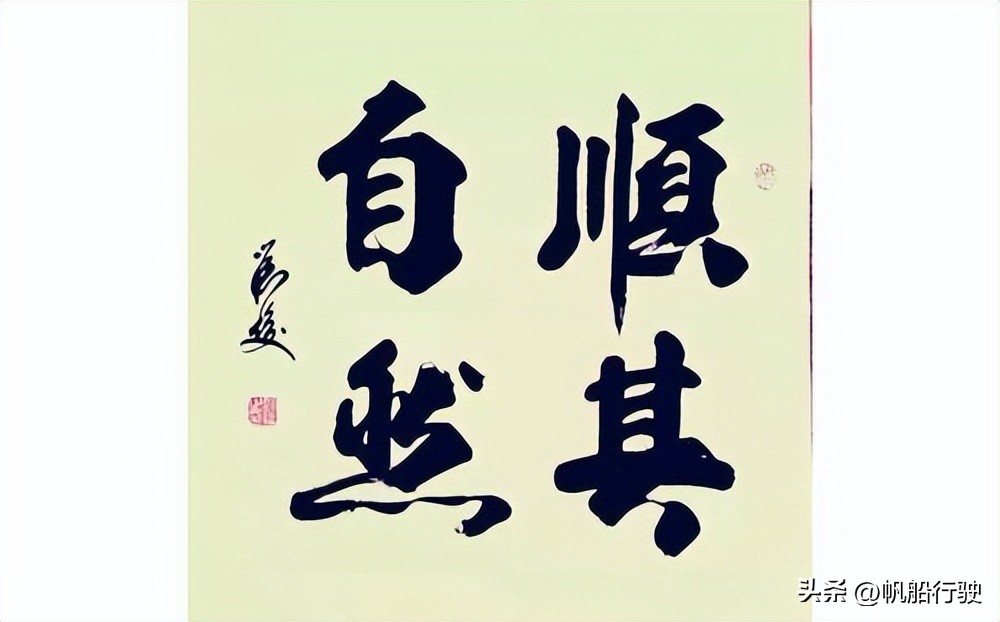 順其
自然
头条 @帆船行驶